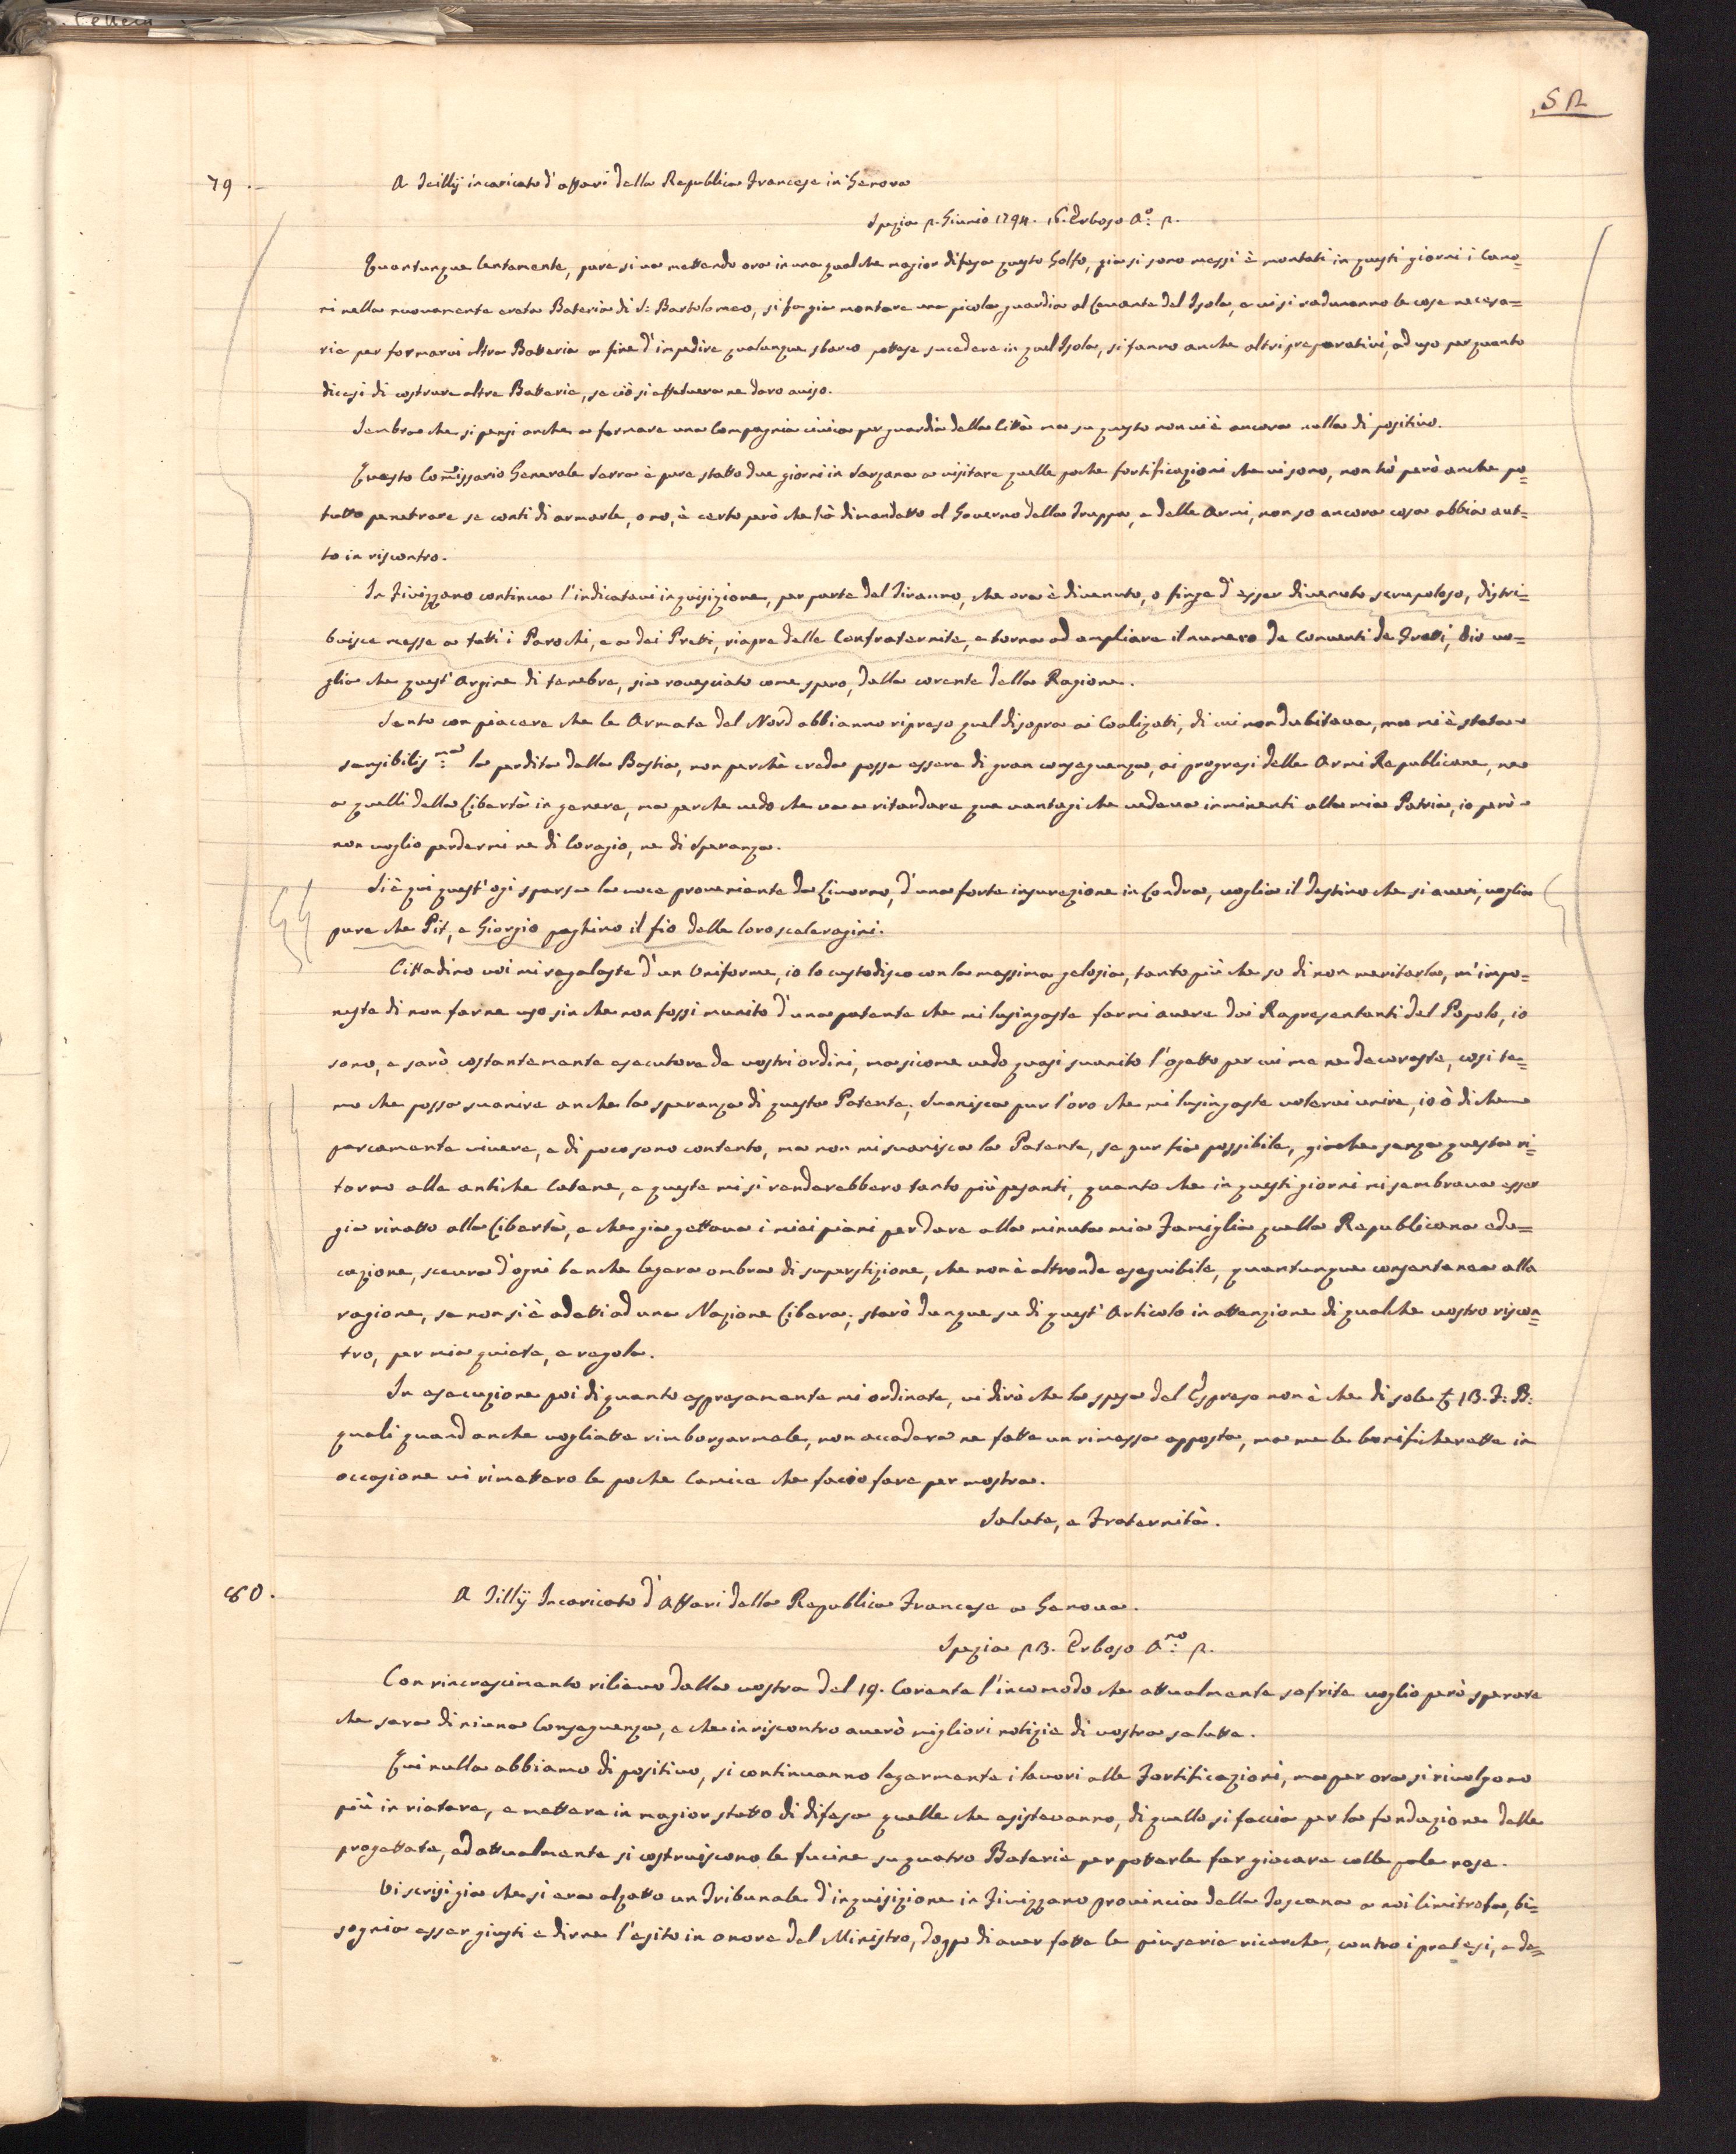 52
79. A Teillÿ incaricato d'affari della Republica Francese in Genova
Spezia 2. Giunio 1794. 15. Erboso A.o 2.
Quantunque lentamente, pure si va mettendo ora in una qualche magior difesa questo Golfo, gia si sono messi è montati in questi giorni i Cano=
ni nella nuovamente ereta Bateria di S: Bartolomeo, si fa gia montare una picola guardia al Levante del Isola, e vi si radunanno le cose necesa=
rie per formarvi altra Batteria a fine d'impedire qualunque sbarco pottese sucedere in quel Isola, si fanno anche altri preparativi, ad uso per quanto
dicesi di costrure altre Batterie, se ciò si effetuera ne daro aviso.
Sembra che si pensi anche a formare una Compagnia civica per guardia della Città ma su questo non vi è ancora nulla di positivo.
Questo Comissario Generale Serra è pure statto due giorni in Sarzana a visitare quelle poche fortificazioni che vi sono, non hò però anche po=
tutto penetrare se conti di armarle, o no, è certo però che hà dimandatto al Governo della Truppa, e delle Armi, non so ancora cosa abbia aut=
to in riscontro.
In Fivizzano continua l'indicatavi inquisizione, per parte del Tiranno, che ora è divenuto, o finge d'esser divenuto scrupoloso, distri=
buisce messe a tutti i Parochi, e a dei Pretti, riapre delle Confraternite, e torna ad ampliare il numero de Conventi de Fratti, Dio vo=
glia che quest'Argine di tenebre, sia rovesciato come spero, dalla corente della Ragione.
Sento con piacere che le Armate del Nord abbianno ripreso quel disopra ai Coalizati, di cui non dubitava, ma mi è stata
sensibilis:ma la perdita della Bastia, non perchè creda possa essere di gran conseguenza, ai progresi delle Armi Republicane, ne
a quelli della Libertà in genere, ma perche vedo che va a ritardare que vantagi che vedeva inminenti alla mia Patria, io però
non voglio perdermi ne di Coragio, ne di Speranza.
Si è qui quest'ogi sparsa la voce proveniente da Livorno, d'una forte insurezione in Londra, voglia il destino che si averi, voglia
pure che Pit, e Giorgio paghino il fio delle loro sceleragini.
Cittadino voi mi regalaste d'un Uniforme, io lo custodisco con la massima gelosia, tanto più che so di non meritarla, m'impo=
neste di non farne uso sin che non fossi munito d'una patente che mi lusingaste farmi avere dai Rapresentanti del Popolo, io
sono, e sarò costantemente esecutore de vostri ordini, ma sicome vedo quasi svanito l'ogetto per cui me ne decoraste, cosi te=
mo che possa svanire anche la speranza di questa Patente; Svanisca pur l'oro che mi lusingaste volervi unire, io ò di che
parcamente vivere, e di poco sono contento, ma non mi svanisca la Patente, se pur fia possibile, giache senza questa ri=
torno alle antiche Catene, e queste mi si renderebbero tanto più pesanti, quanto che in questi giorni mi sembrava esser
gia rinatto alla Libertà, e che gia gettava i miei piani per dare alla minuta mia Famiglia quella Republicana edu=
cazione, scevra d'ogni benche legera ombra di superstizione, che non è altronde eseguibile, quantunque consentanea alla
ragione, se non si è adetti ad una Nazione Libera; starò dunque su di quest'Articolo in attenzione di qualche vostro riscon=
tro, per mia quiete, e regola.
In esecuzione poi di quanto espresamente mi ordinate, vi dirò che la spesa del Espreso non è che di sole £ 13. F: B:
quali quand'anche vogliatte rimborsarmele, non accadera ne fatte un rimessa apposta, ma me le bonificherette in
occasione vi rimettero le poche Camice che facio fare per mostra.
Salute, e Fraternità.
80. A Tillÿ Incaricato d'Affari della Republica Francese a Genova.
Spezia 23. Erboso A:no 2.
Con rincrescimento rilievo dalla vostra del 19. Corente l'incomodo che attualmente sofrite voglio però sperare
che sara di niuna Conseguenza, e che in riscontro averò migliori notizie di vostra salutte.
Qui nulla abbiamo di positivo, si continuanno legermente i lavori alle Fortificazioni, ma per ora si rivolgono
più in riatare, e mettere in magior statto di difesa quelle che esistevanno, di quello si faccia per la fondazione delle
progettate, ed attualmente si costruiscono le fucine su quatro Baterie per potterle far giocare colle pale rose.
Vi scrisi gia che si era alzatto un Tribunale d'inquisizione in Fivizzano provincia della Toscana a noi limitrofa, bi=
sognia esser giusti e dirne l'esito in onore del Ministro, doppo di aver fatte le piu serie ricerche, contro i pretesi, e de=